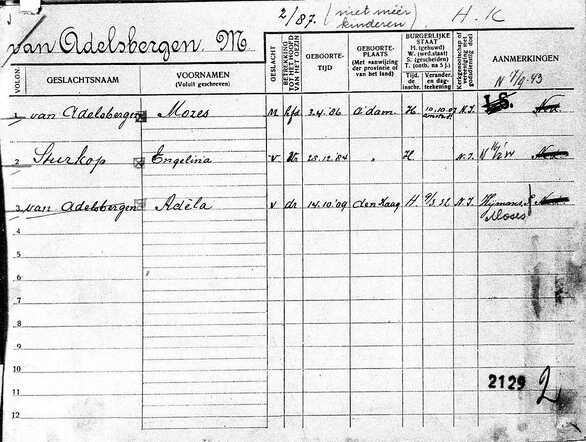 2/87. (niet méér kinderen) H. K
van Adelsbergen, M
VOLGN.
GESLACHTSNAAM
VOORNAMEN
(Voluit geschreven)
GESLACHT
BETREKKING TOT HET HOOFD VAN HET GEZIN
GEBOORTE-
TIJD
GEBOORTE-
PLAATS
(Met aanwijzing
der provincie of
van het land)
BURGERLIJKE
STAAT
H. (gehuwd)
W. (wed.staat)
S. (gescheiden)
T. (ontb. na 5 j.)
Tijd.
de
inschr.
Verander.
en dag-
teekening
Kerkgenootschap of
vereeniging met
godsdienstig doel
AANMERKINGEN
N 7/9-43
1 van Adelsbergen Mozes M hfd 3.4.86 A'dam H N.I. I.S.
2 Sturkop Engelina v 25.12.84 " H N.I. N
3 van Adelsbergen Adèla v dr 14.10.09 den Haag H. N.I. Hijmans, S
Moses
4
5
6
7
8
9
10
11
12
2129 2